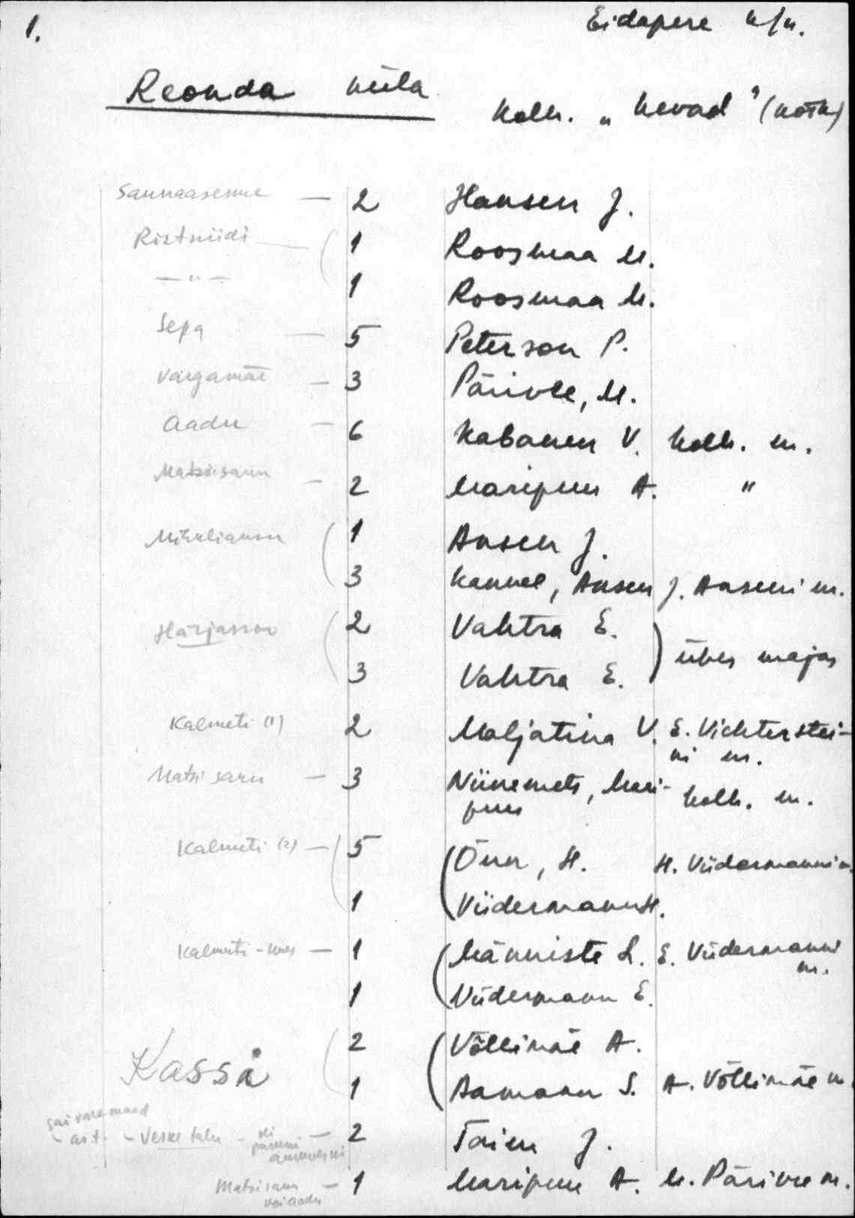 1. Eidapere k/n.
Reonda küla
kolh. „ Kevad " (
Saunaaseme — 2 Hansen J.
Ristniidi — 1 Roosmaa M.
— " — 1 Roosmaa M.
Sepa — 5 Peterson P.
Vargamäe — 3 Pärivee, M.
Aadu — 6 Kabanen V. kolh. m.
Matsisaun — 2 Maripuu A. "
1 Ansen J.
3 Kannel, Ansen J. Anseni m.
Härjassoo 2 Vahtra E.
3 Vahtra E. ) ühes majas
Kalmeti (1) 2 Maljatina V. E. Vichterstei-
ni m.
Matsi saru — 3 Niinemets, Mari-
puu kolh. m.
Kalmeti (2) — 5 (Õun, H. H. Viidermanni m.
1 Viidermann H.
Kalmeti-uus — 1 (Männiste L. E. Viidermanni
m.
1 Viidermann E.
Kassa 2 (Võllimäe A.
1 Aamann S. A. Võllimäe m.
sai vanemaad
— Veske talu — 2 Toim J.
Matsisaun — 1 Maripuu A. M. Pärivee m.
või Aadu